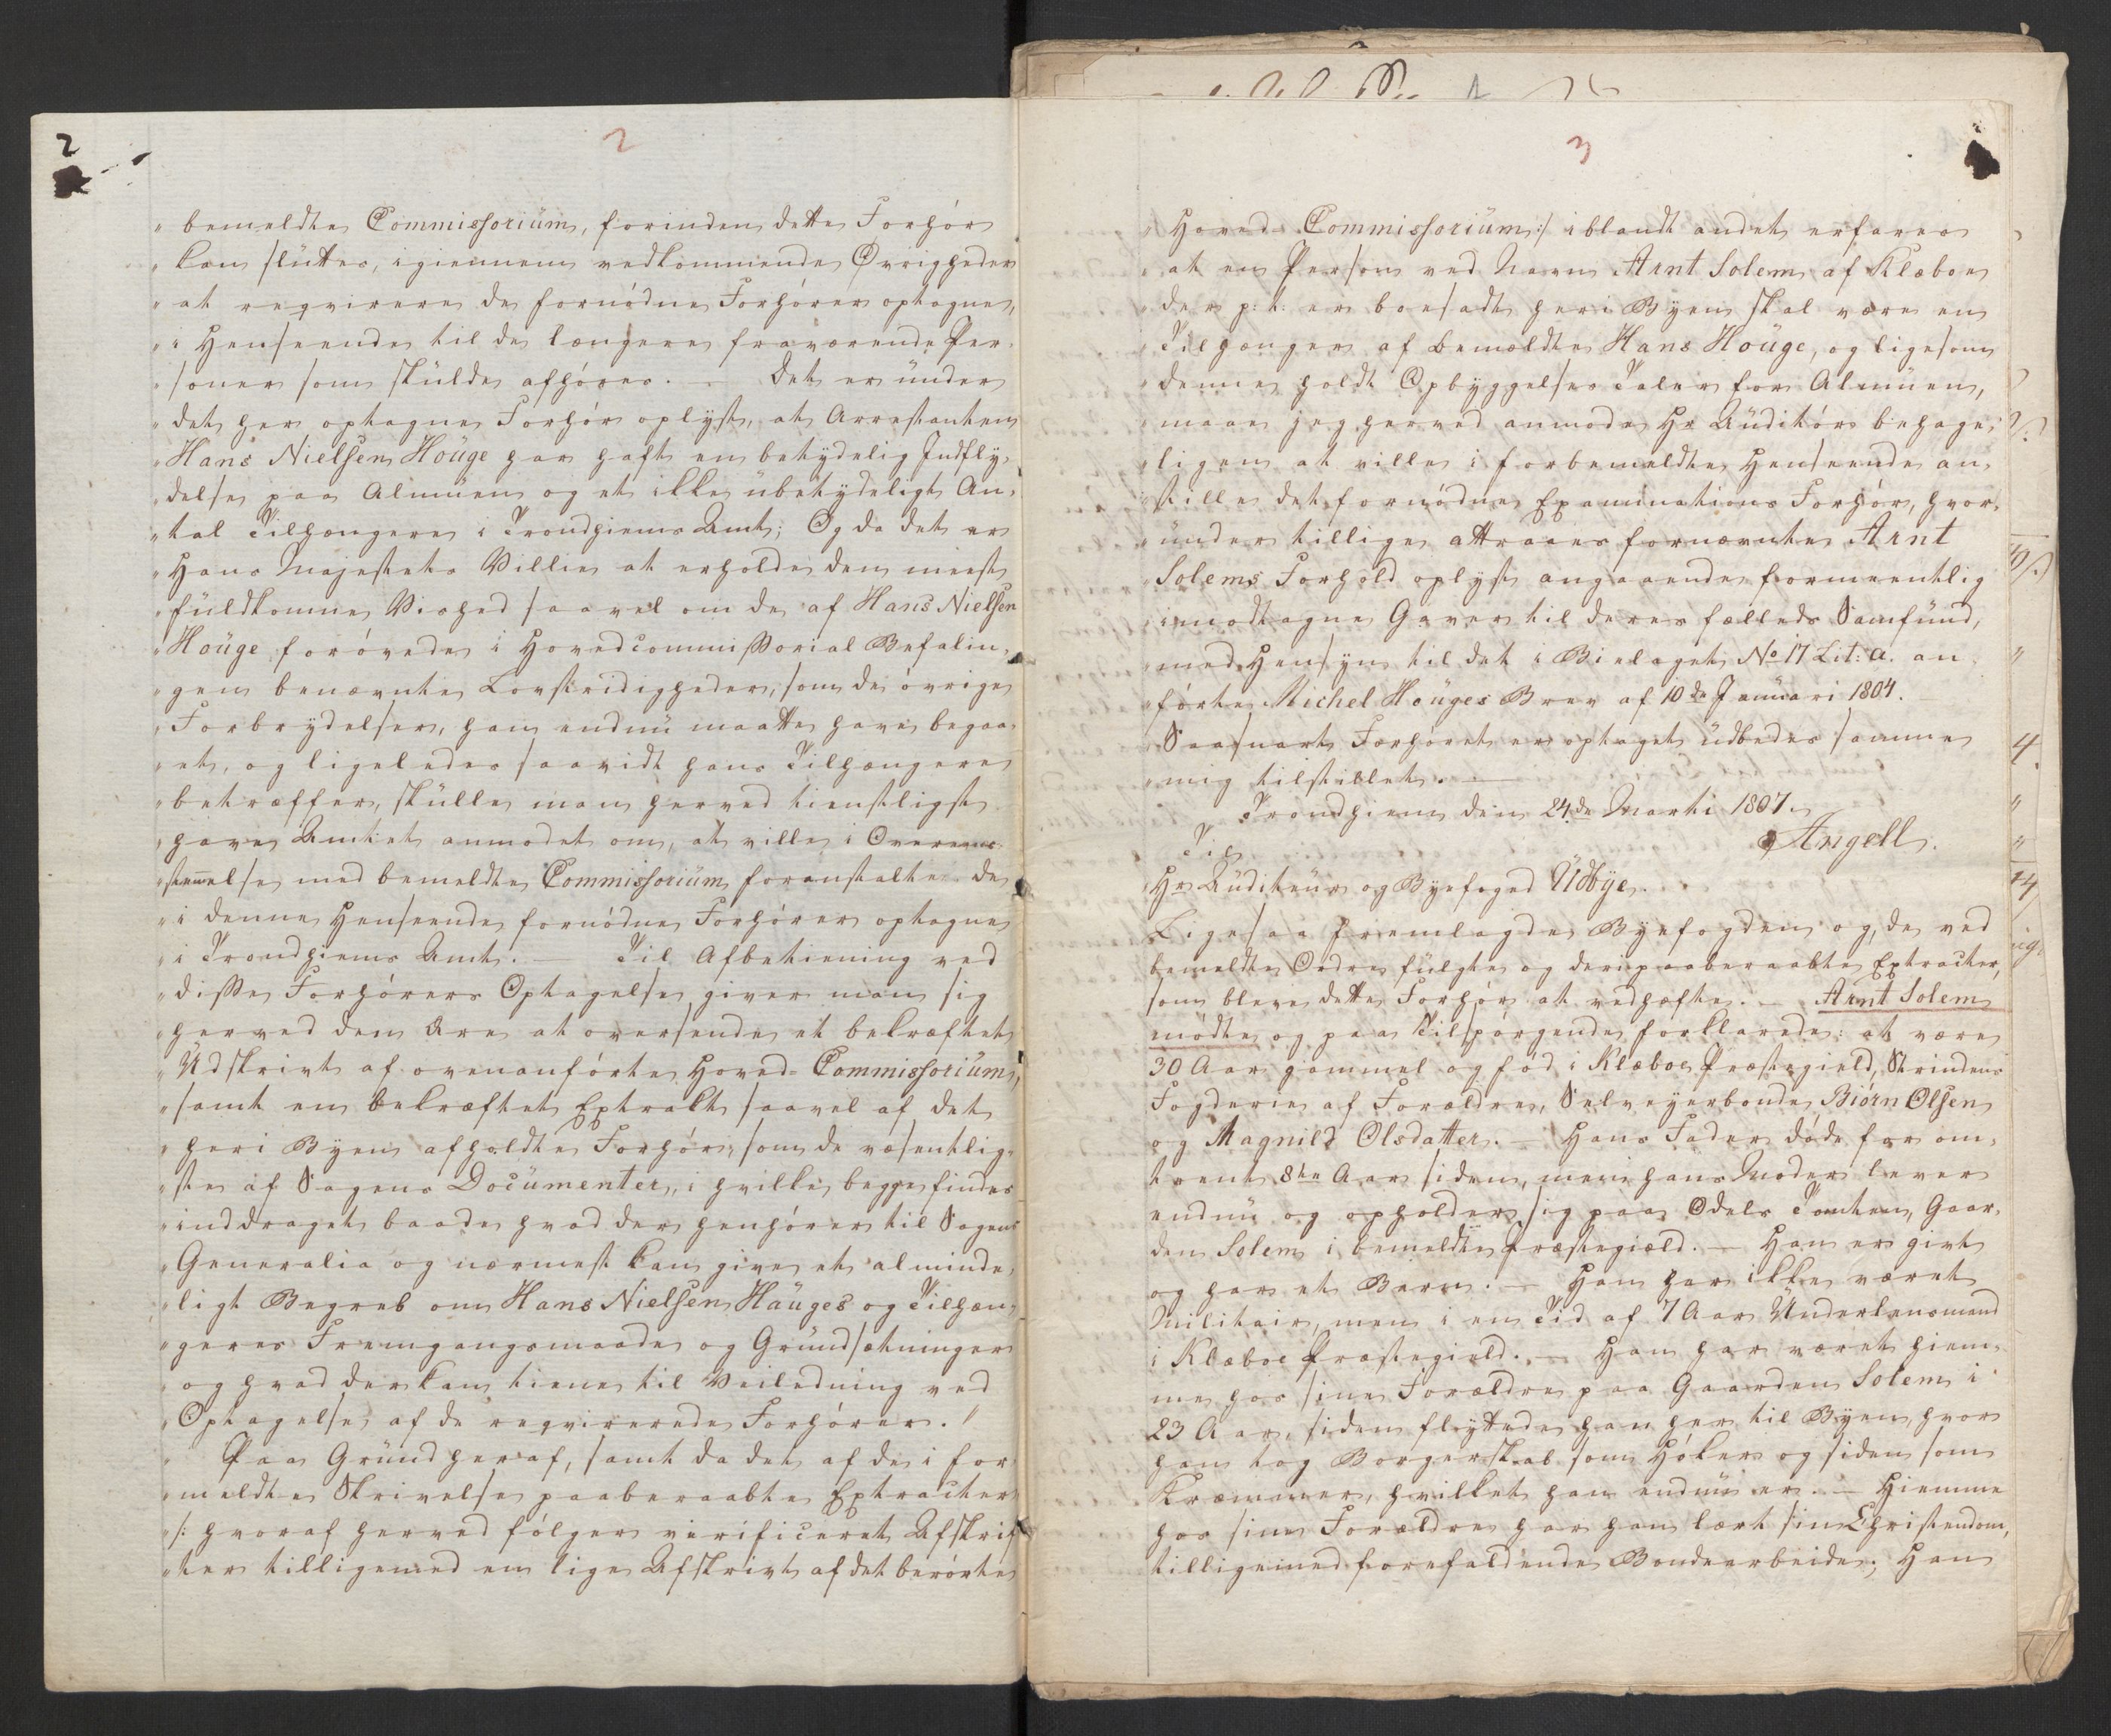 2
2
" bemeldte Commissorium, forinden dette Forhör
" kan sluttes, igiennem vedkommende Øvrigheder
" at reqvirere de fornödne Forhörer optagne,
" i Henseende til de længere fraværende Per-
" soner som skulde afhöres. – Det er under
" det her optagne Forhör oplyst, at Arrestanten
" Hans Nielsen Houge har haft en betydelig Indfly-
" delse paa Almuen og et ikke ubetydeligt An-
" tal Tilhængere i Trondhiems Amt; Og da det er
" Hans Majestets Villie at erholde den meest
" fuldkomne Vished saavel om de af Hans Nielsen
" Houge forövede i Hovedcommissorial Befalin-
" gen benævnte Lovstridigheder, som de övrige
" Forbrydelser, han endnu maatte have begaa-
" et, og ligeledes saavidt hans Tilhængere
" betræffer, skulle man herved tienstligst
" have Amtet anmodet om, at ville i Overens-
" stemmelse med bemeldte Commissorium foranstalte de
" i denne Henseende fornödne Forhörer optagne
" i Trondhiems Amt. – Til Afbetiening ved
" disse Forhörers Optagelse giver man sig
" herved den Ære at oversende et bekræftet
" Udskrivt af ovenanförte Hoved-Commissorium,
" samt en bekræftet Extrakt saavel af det
" her i Byen afholdte Forhör, som de væsentlig-
" ste af Sagens Documenter, i hvilke begge findes
" inddraget baade hvad der henhörer til Sagens
" Generalia og nærmest kan give et alminde-
" ligt Begreb om Hans Nielsen Hauges og Tilhæn-
" geres Fremgangsmaade og Grundsætninger
" og hvad der kan tiene til Veiledning ved
" Optagelse af de reqvirerede Forhörer. "
" Paa Grund heraf, samt da det af de i for-
" meldte Skrivelse paaberaabte Extracter
" /: hvoraf herved fölger verificeret Afskrif-
" ter tilligemed en lige Afskrivt af det berörte
3
" Hoved-Commissorium :/ iblandt andet erfares
" at en Person ved Navn Arnt Solem af Klæboe
" der p: t: er boesadt her i Byen skal være en
" Tilhænger af bemældte Hans Houge, og ligesom
" denne holdt Opbyggelses Taler for Almuen,
" maae jeg herved anmode Hr Auditör behage-
" ligen at ville i forbemeldte Henseende an-
" stille det fornödne Examinations Forhör, hvor-
" under tillige attraaes fornævnte Arnt
" Solems Forhold oplyst angaaende formeentlig
" imodtagne Gaver til deres fælleds Samfund,
" med Hensyn til det i Bielaget No 17 Lit: a. an-
" förte Michel Houges Brev af 10de Januari 1804.
" Saasnart Forhöret er optaget udbedes samme
" mig tilstillet. –
Trondhiem den 24de Marti 1807.
Angell.
Til
Hr Auditeur og Byefoged Udbÿe.
Ligesaa fremlagde Byefogden og, de ved
bemeldte Ordre fulgte og deri paaberaabte Extracter,
som bleve dette Forhör at vedhæfte. – Arnt Solem
mödte og paa Tilspörgende forklarede: at være
30 Aar gammel og föd i Klæboe Præstegield, Strindens
Fogderie af Forældre, Selveyerbonde Biörn Olsen
og Magnild Olsdatter. – Hans Fader döde for om-
trent 8te Aar siden, men hans Moder lever
endnu og opholder sig paa Odels Tomten, Gaar-
den Solem i bemeldte Præstegiæld. – Han er givt
og har et Barn. – Han har ikke været
Militair, men i en Tid af 7 Aar Underlensmand
i Klæboe Præstegield. – Han har været hiem-
me hos sine Forældre paa Gaarden Solem i
23 Aar, siden flyttede han her til Byen, hvor
han tog Borgerskab som Höker og siden som
Kræmmer, hvilket han endnu er. – Hiemme
hos sine Forældre har han lært sin Christendom,
tilligemed forefaldende Bondearbeide; Han